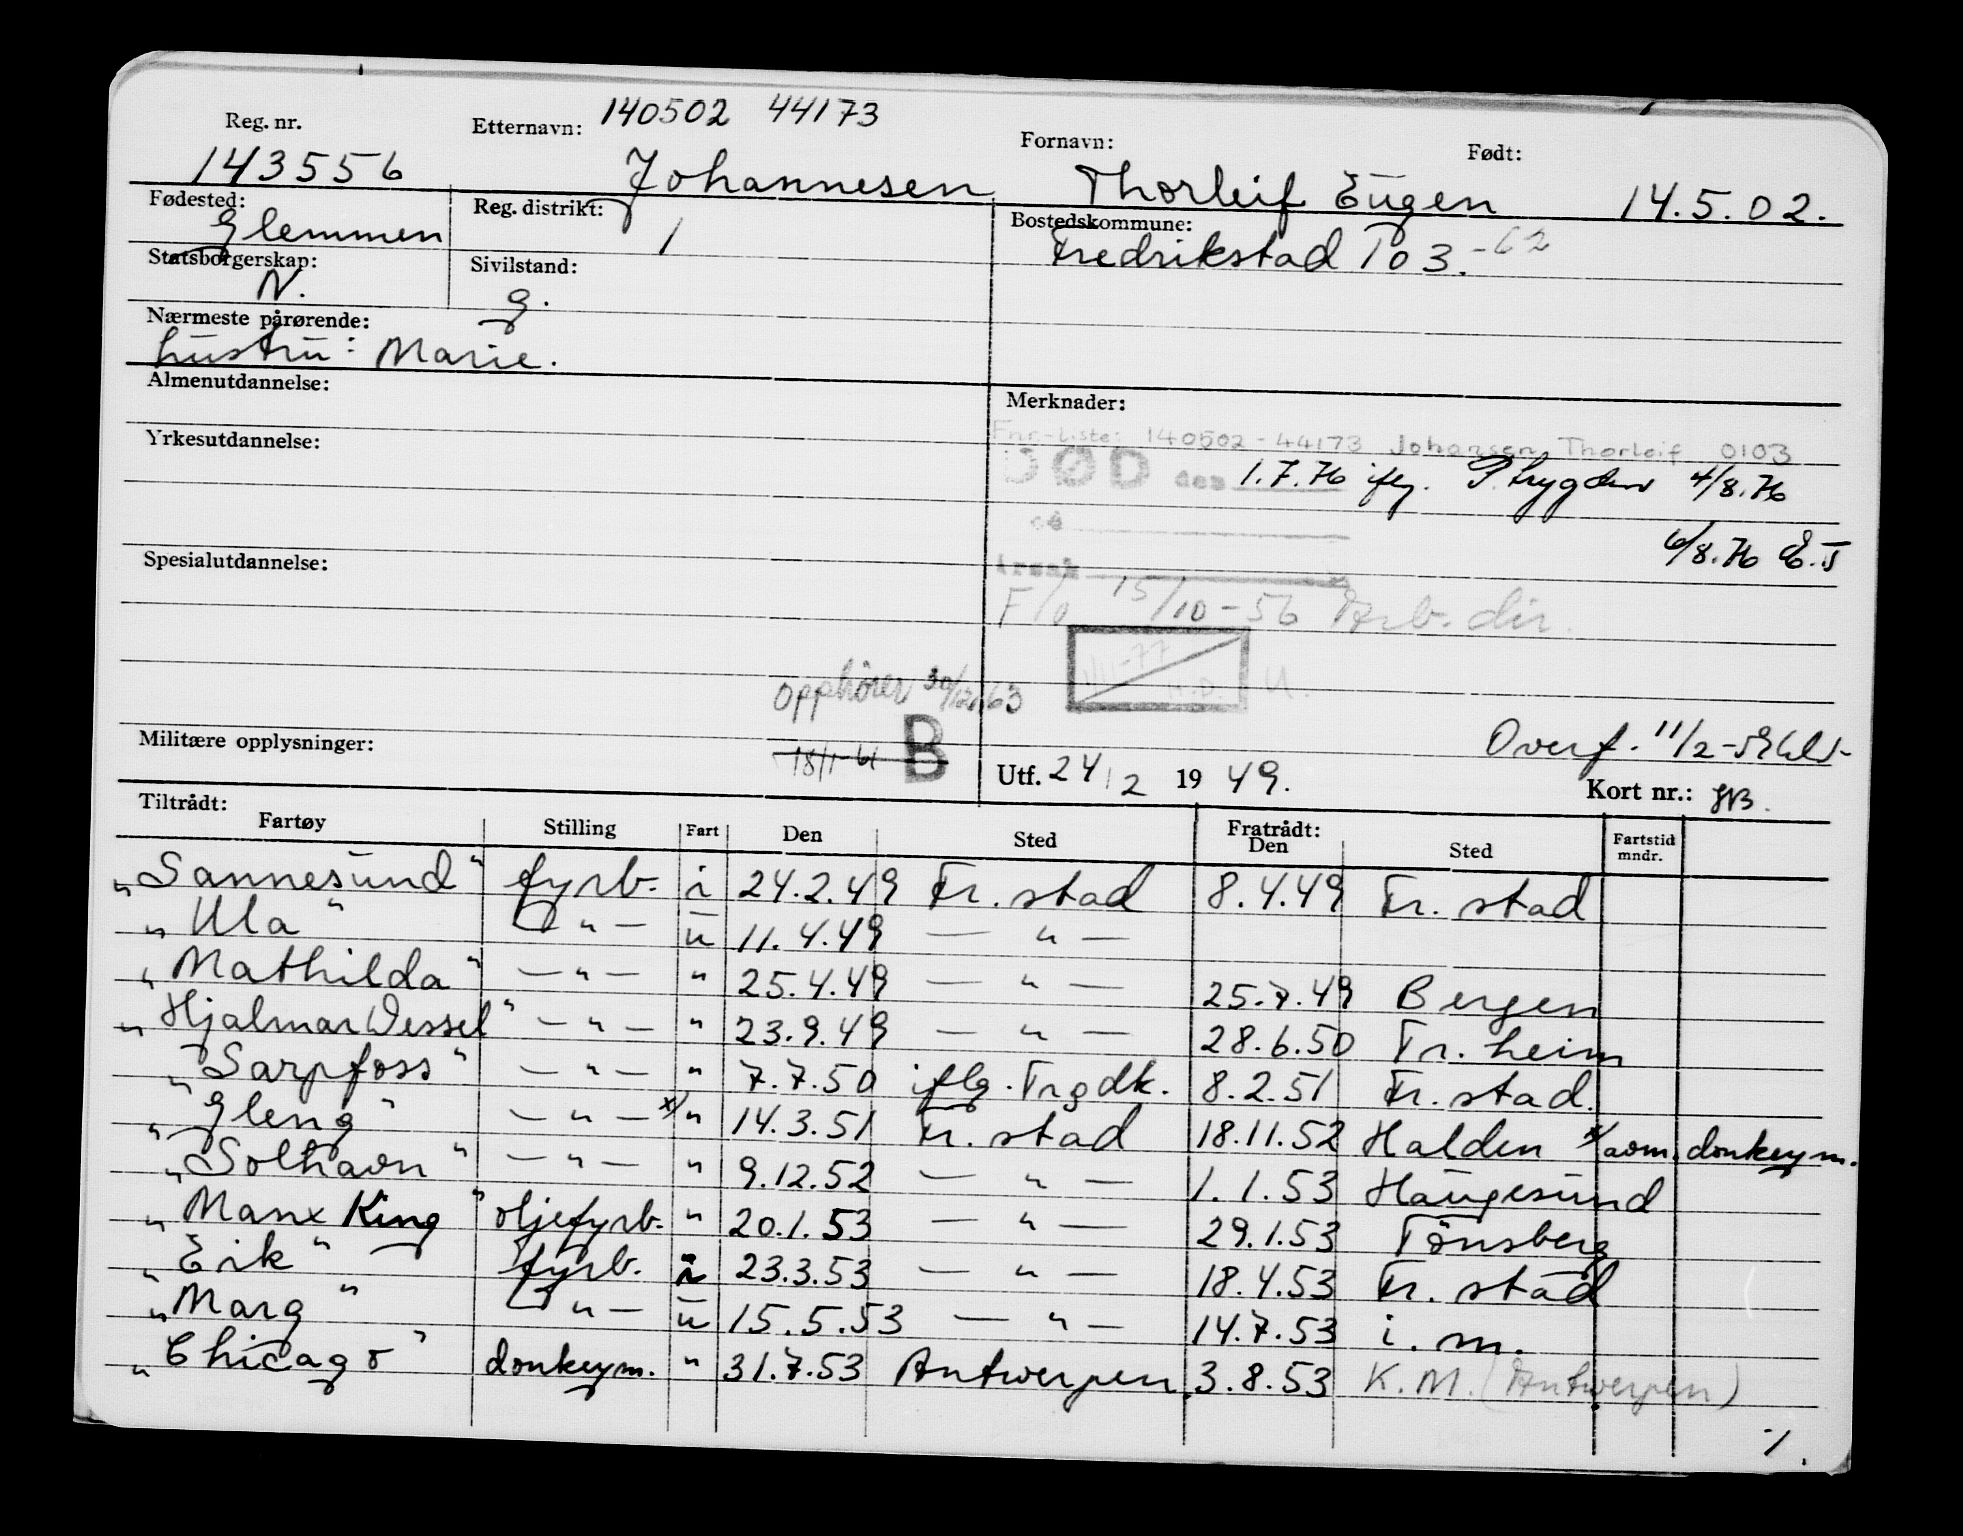 140502 44173
Reg. nr. Etternavn: Fornavn: Født:
143556 Johannesen Thorleif Eugen 14.5.02.
Fødested: Reg. distrikt: Bostedskommune:
Glemmen 1 Fredrikstad 103.-62
Statsborgerskap: Sivilstand:
N. g.
Nærmeste pårørende:
hustru: Marie.
Almenutdannelse: Merknader:
Fnr-liste: 140502-44173 Johansen, Thorleif 0103
Yrkesutdannelse: DØD den 1.7.76 iflg. P. trygden 4/8.76
6/8.76 E.J
Spesialutdannelse: årsak
F/o 15/10-56 Arb. dir.
1/11-77 H.D. U.
Opphører 30/12.63
Militære opplysninger: 18/1-61 B Overf. 11/2-59
Utf. 24/2 1949. Kort nr.:
Tiltrådt: Fratrådt:
Fartøy Stilling Fart Den Sted Den Sted Fartstid mndr.
"Sannesund" fyrb. i 24.2.49 Fr.stad 8.4.49 Fr.stad
"Ula" — " — u 11.4.49 — " —
"Mathilda" — " — " 25.4.49 — " — 25.7.49 Bergen
"Hjalmar Wessel" — " — " 23.9.49 — " — 28.6.50 Tr.heim
"Sarpfoss" — " — " 7.7.50 iflg. Trgdk. 8.2.51 Fr.stad.
"Gleng" — " — x/ " 14.3.51 Fr.stad 18.11.52 Halden x/ aom. donkeym.
"Solhavn" — " — " 9.12.52 — " — 1.1.53 Haugesund
"Manx King" oljefyrb. " 20.1.53 — " — 29.1.53 Tönsberg
"Erik" fyrb. i 23.3.53 — " — 18.4.53 Fr.stad
"Marg" — " — u 15.5.53 — " — 14.7.53 i.m.
"Chicago" donkeym. " 31.7.53 Antwerpen 3.8.53 K.M. (Antwerpen)